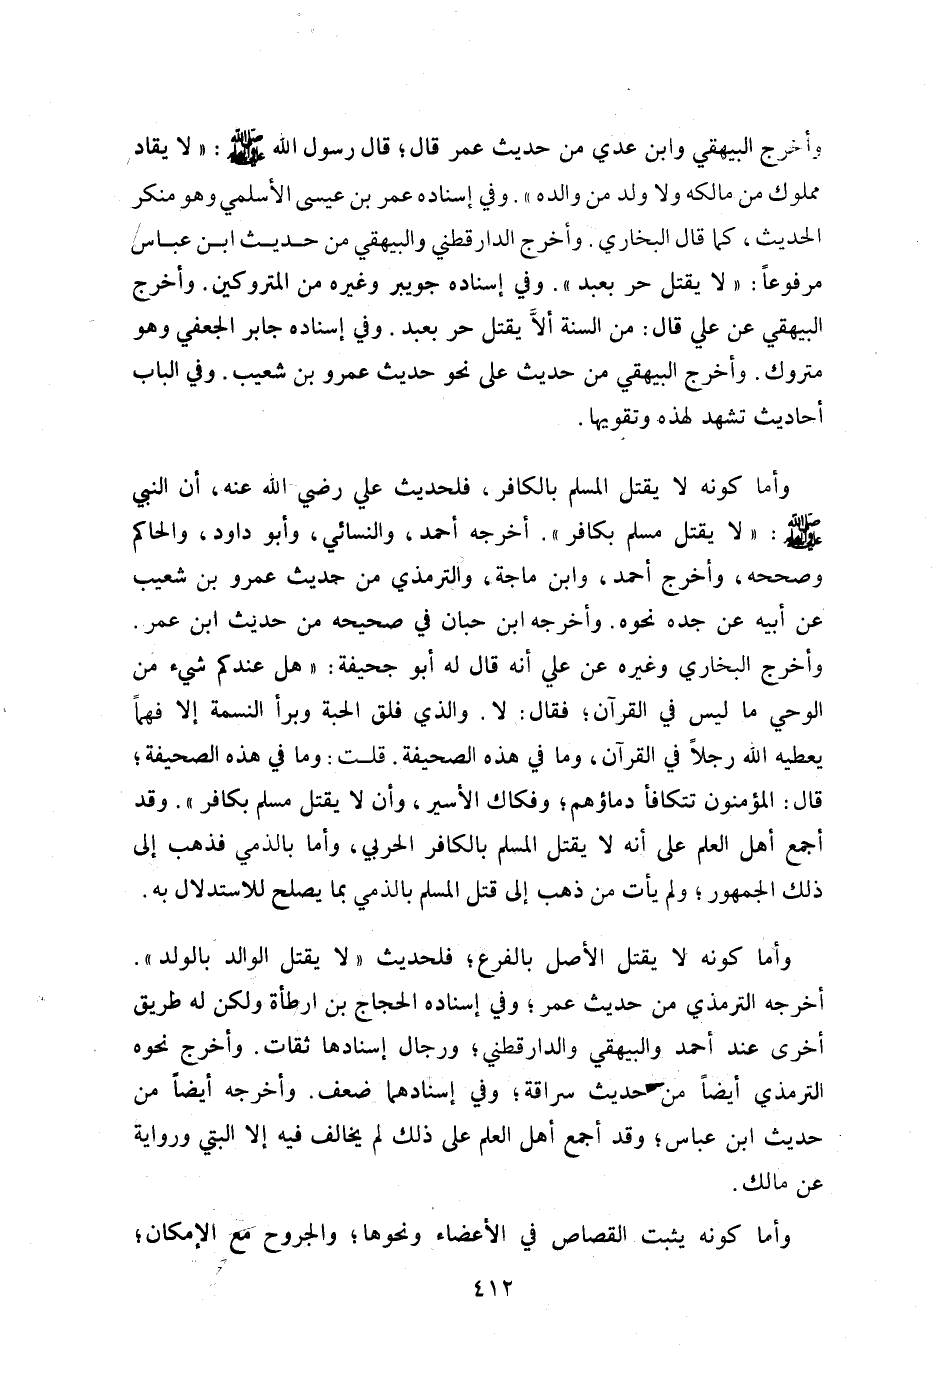 وأخرج البيهقي وابن عدي من حديث عمر قال؛ قال رسول الله ﷺ : « لا يقاد
مملوك من مالكه ولا ولد من والده ». وفي إسناده عمر بن عيسى الأسلمي وهو منكر
الحديث، كما قال البخاري. وأخرج الدارقطني والبيهقي من حديث ابن عباس
مرفوعاً: « لا يقتل حر بعبد ». وفي إسناده جويبر وغيره من المتروكين. وأخرج
البيهقي عن علي قال: من السنة ألاَّ يقتل حر بعبد. وفي إسناده جابر الجعفي وهو
متروك. وأخرج البيهقي من حديث على نحو حديث عمرو بن شعيب. وفي الباب
أحاديث تشهد لهذه وتقويها.
وأما كونه لا يقتل المسلم بالكافر، فلحديث علي رضي الله عنه، أن النبي
ﷺ : « لا يقتل مسلم بكافر ». أخرجه أحمد، والنسائي، وأبو داود، والحاكم
وصححه، وأخرج أحمد، وابن ماجة، والترمذي من حديث عمرو بن شعيب
عن أبيه عن جده نحوه. وأخرجه ابن حبان في صحيحه من حديث ابن عمر.
وأخرج البخاري وغيره عن علي أنه قال له أبو جحيفة: « هل عندكم شيء من
الوحي ما ليس في القرآن؛ فقال: لا. والذي فلق الحبة وبرأ النسمة إلا فهماً
يعطيه الله رجلاً في القرآن، وما في هذه الصحيفة. قلت: وما في هذه الصحيفة؛
قال: المؤمنون تتكافأ دماؤهم؛ وفكاك الأسير، وأن لا يقتل مسلم بكافر ». وقد
أجمع أهل العلم على أنه لا يقتل المسلم بالكافر الحربي، وأما بالذمي فذهب إلى
ذلك الجمهور؛ ولم يأت من ذهب إلى قتل المسلم بالذمي بما يصلح للاستدلال به.
وأما كونه لا يقتل الأصل بالفرع؛ فلحديث « لا يقتل الوالد بالولد ».
أخرجه الترمذي من حديث عمر؛ وفي إسناده الحجاج بن ارطأة ولكن له طريق
أخرى عند أحمد والبيهقي والدارقطني؛ ورجال إسنادها ثقات. وأخرج نحوه
الترمذي أيضاً من حديث سراقة؛ وفي إسنادهما ضعف. وأخرجه أيضاً من
حديث ابن عباس؛ وقد أجمع أهل العلم على ذلك لم يخالف فيه إلا البتي ورواية
عن مالك.
وأما كونه يثبت القصاص في الأعضاء ونحوها؛ والجروح مع الإمكان؛
٤١٢